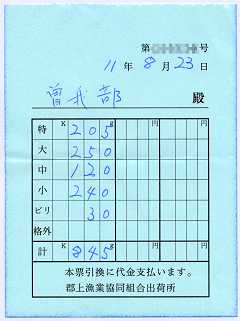 第 号
11年8月23日
曽我部 殿
K g 円 円
特 205
大 250
中 120
小 240
ビリ 30
格外
計 K 845 g 円 円
本票引換に代金支払います。
郡上漁業協同組合出荷所